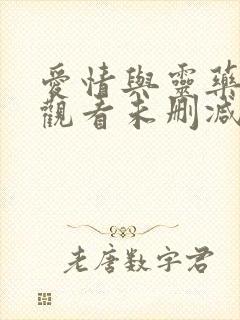 愛情與靈藥
觀看未刪減
老唐數字君